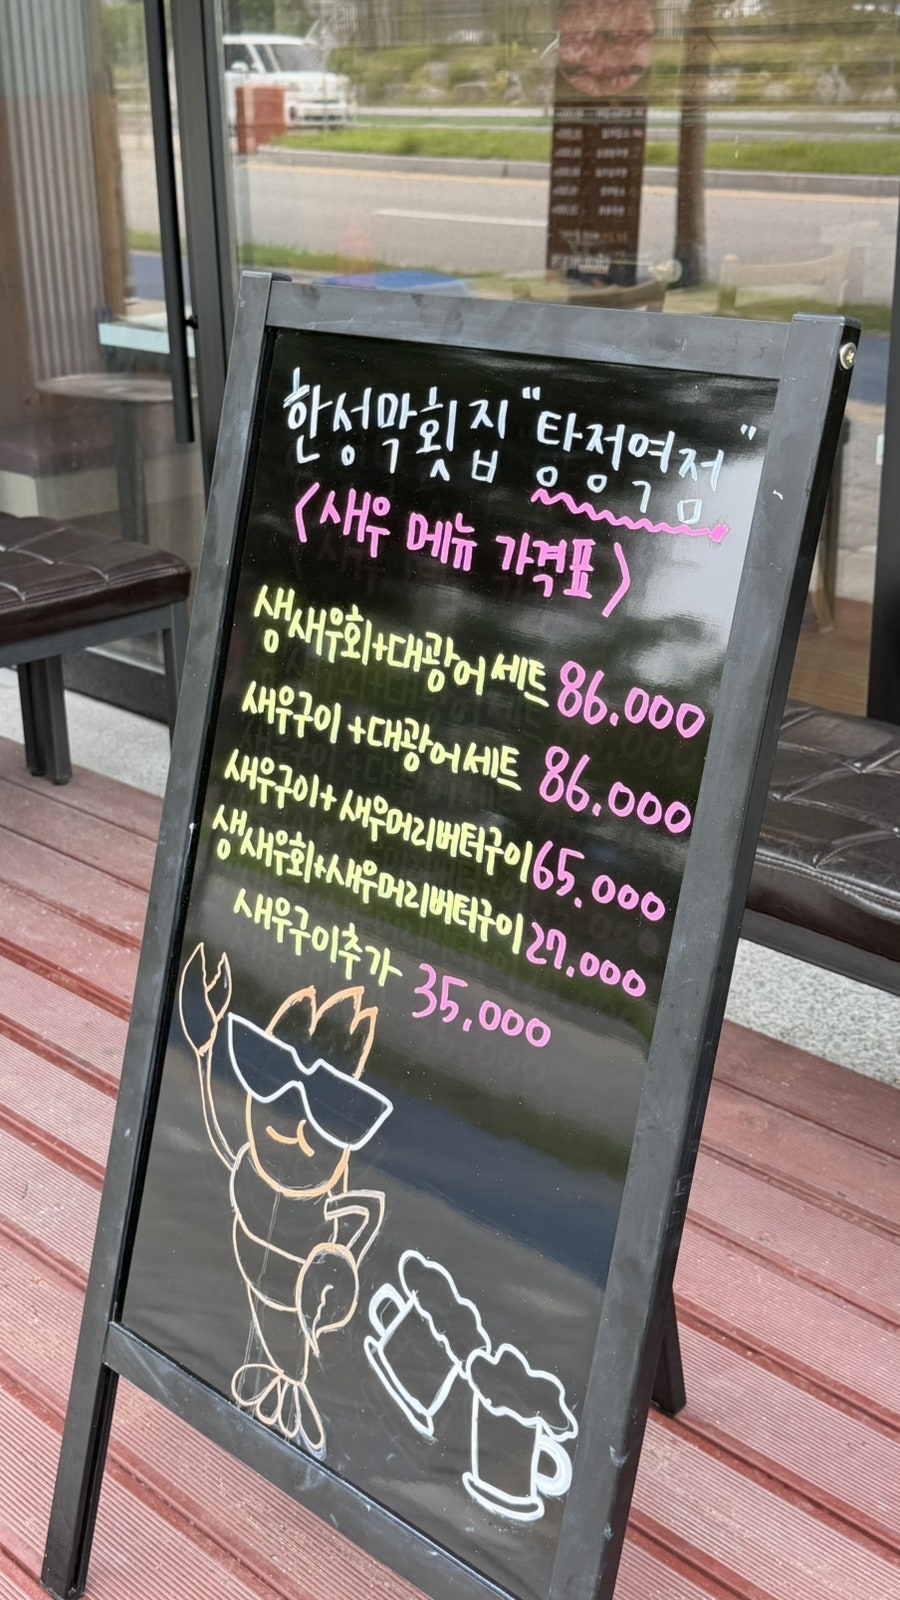 한성막횟집 "탕정역점"
<새우 메뉴 가격표>
생새우회+대광어 세트 86.000
새우구이 +대광어세트 86.000
새우구이+ 새우머리버터구이 65.000
생새우회+새우머리버터구이 27.000
새우구이추가 35.000